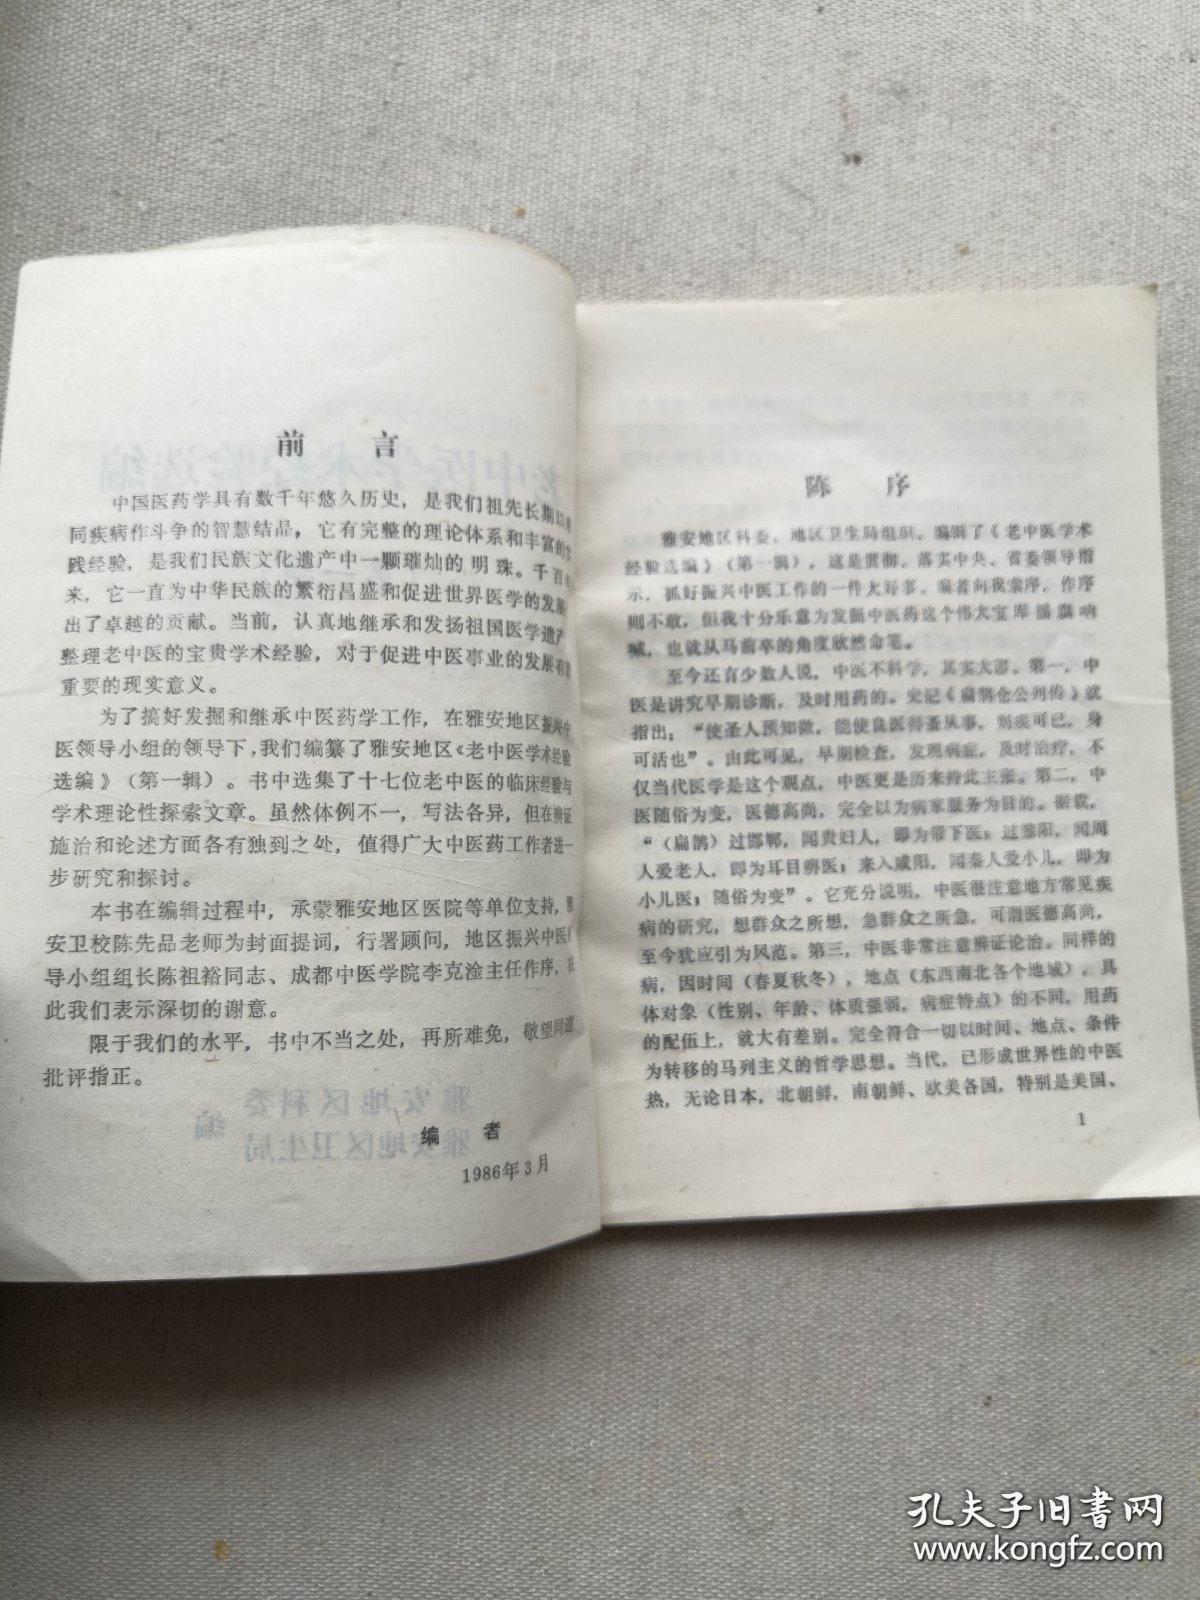 前 言
中国医药学具有数千年悠久历史，是我们祖先长期以来
同疾病作斗争的智慧结晶，它有完整的理论体系和丰富的实
践经验，是我们民族文化遗产中一颗璀灿的明珠。千百
来，它一直为中华民族的繁衍昌盛和促进世界医学的发展
出了卓越的贡献。当前，认真地继承和发扬祖国医学遗产
整理老中医的宝贵学术经验，对于促进中医事业的发展有着
重要的现实意义。
为了搞好发掘和继承中医药学工作，在雅安地区振兴中
医领导小组的领导下，我们编纂了雅安地区《老中医学术经验
选编》（第一辑）。书中选集了十七位老中医的临床经验与
学术理论性探索文章。虽然体例不一，写法各异，但在辨证
施治和论述方面各有独到之处，值得广大中医药工作者进一
步研究和探讨。
本书在编辑过程中，承蒙雅安地区医院等单位支持，雅
安卫校陈先品老师为封面提词，行署顾问，地区振兴中医
导小组组长陈祖裕同志、成都中医学院李克淦主任作序，在
此我们表示深切的谢意。
限于我们的水平，书中不当之处，再所难免，敬望同道
批评指正。
编 者
1986年3月
陈 序
雅安地区科委、地区卫生局组织、编辑了《老中医学术
经验选编》（第一辑），这是贯彻、落实中央、省委领导指
示，抓好振兴中医工作的一件大好事。编者向我索序，作序
则不敢，但我十分乐意为发掘中医药这个伟大宝库摇旗呐
喊，也就从马前卒的角度欣然命笔。
至今还有少数人说，中医不科学，其实大谬。第一，中
医是讲究早期诊断，及时用药的。史记《扁鹊仓公列传》就
指出：“使圣人预知微，能使良医得蚤从事，则疾可已，身
可活也”。由此可见，早期检查，发现病症，及时治疗，不
仅当代医学是这个观点，中医更是历来持此主张。第二，中
医随俗为变，医德高尚，完全以为病家服务为目的。据载，
“（扁鹊）过邯郸，闻贵妇人，即为带下医；过雒阳，闻周
人爱老人，即为耳目痹医；来入咸阳，闻秦人爱小儿，即为
小儿医；随俗为变”。它充分说明，中医很注意地方常见疾
病的研究，想群众之所想，急群众之所急，可谓医德高尚，
至今犹应引为风范。第三，中医非常注意辨证论治。同样的
病，因时间（春夏秋冬），地点（东西南北各个地域），具
体对象（性别、年龄、体质强弱，病症特点）的不同，用药
的配伍上，就大有差别。完全符合一切以时间、地点、条件
为转移的马列主义的哲学思想。当代，已形成世界性的中医
热，无论日本，北朝鲜，南朝鲜、欧美各国，特别是美国、
1
孔夫子旧书网
www.kongfz.com